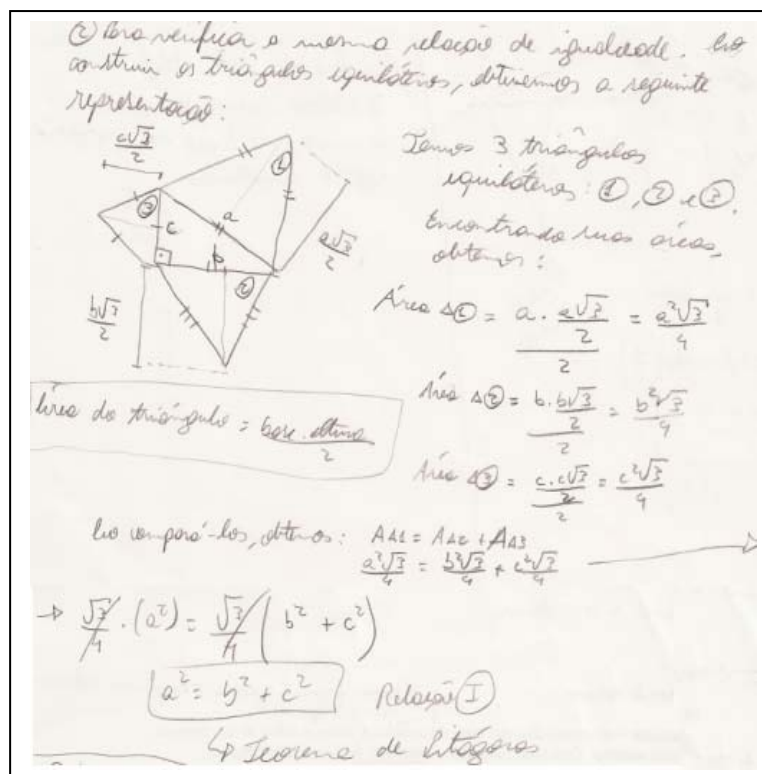 ② Para verificar a mesma relação de igualdade. Ao
construir os triângulos equiláteros, obtivemos a seguinte
representação:
c√3/2
①
③
c
a
a√3/2
b
②
b√3/2
Temos 3 triângulos
equiláteros: ①, ② e ③.
Encontrando suas áreas,
obtemos:
Área Δ① = (a . a√3/2)/2 = a²√3/4
Área Δ② = (b . b√3/2)/2 = b²√3/4
Área Δ③ = (c . c√3/2)/2 = c²√3/4
Área do triângulo = base . altura/2
Ao compará-los, obtemos: AΔ1 = AΔ2 + AΔ3
a²√3/4 = b²√3/4 + c²√3/4 →
→ √3/4 . (a²) = √3/4 (b² + c²)
a² = b² + c² Relação I
↳ Teorema de Pitágoras